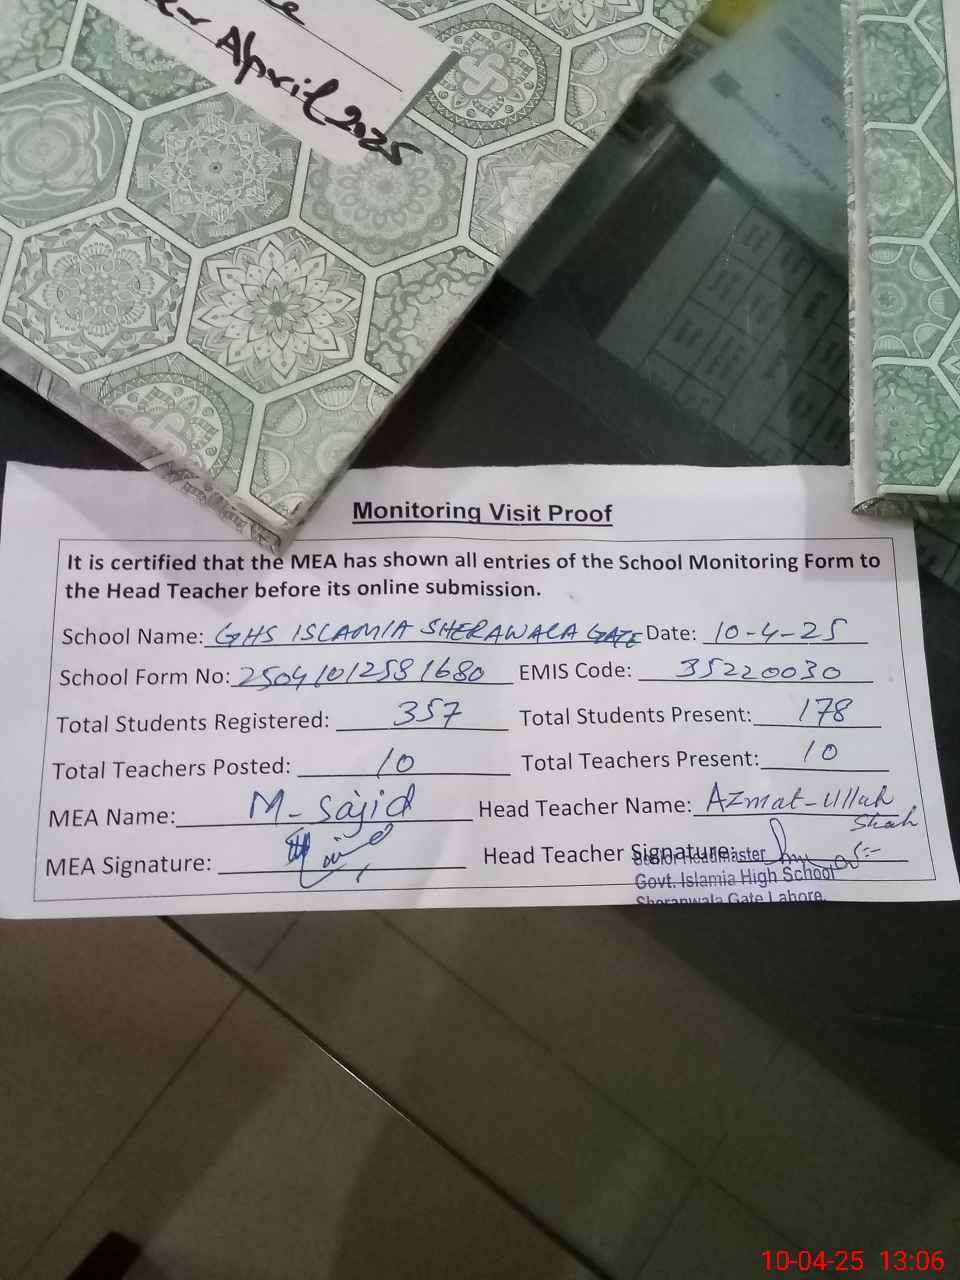 April 2025
Monitoring Visit Proof
It is certified that the MEA has shown all entries of the School Monitoring Form to
the Head Teacher before its online submission.
School Name: GHS ISLAMIA SHERAWALA GATE Date: 10-4-25
School Form No: 25041012581680 EMIS Code: 35220030
Total Students Registered: 357 Total Students Present: 178
Total Teachers Posted: 10 Total Teachers Present: 10
MEA Name: M-Sajid Head Teacher Name: Azmat-Ullah
Shah
MEA Signature: Head Teacher Signature:
Senior Headmaster
Govt. Islamia High School
Sheranwala Gate Lahore.
10-04-25 13:06